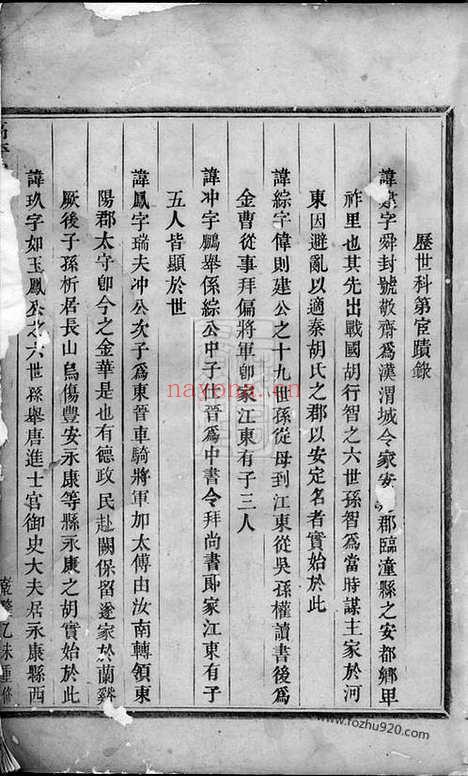 歷世科第宦蹟錄
諱 字舜封號敬齋為漢渭城令家安 郡臨潼縣之安都鄉甲
祚里也其先出戰國胡行智之六世孫智為當時謀主家於河
東因避亂以適秦胡氏之郡以安定名者實始於此
諱綜字偉則建公之十九世孫從母到江東從吳孫權讀書後為
金曹從事拜偏將軍卽家江東有子三人
諱冲字鵬舉係綜公中子晉為中書令拜尚書郎家江東有子
五人皆顯於世
諱鳳字瑞夫冲公次子為東晉車騎將軍加太傅由汝南轉領東
陽郡太守卽今之金華是也有德政民赴闕保留遂家於蘭谿
厥後子孫析居長山烏傷豐安永康等縣永康之胡實始於此
諱玖字如玉鳳公之六世孫舉唐進士官御史大夫居永康縣西
乾隆乙未重修
nayona.cn
www.fozhu920.com